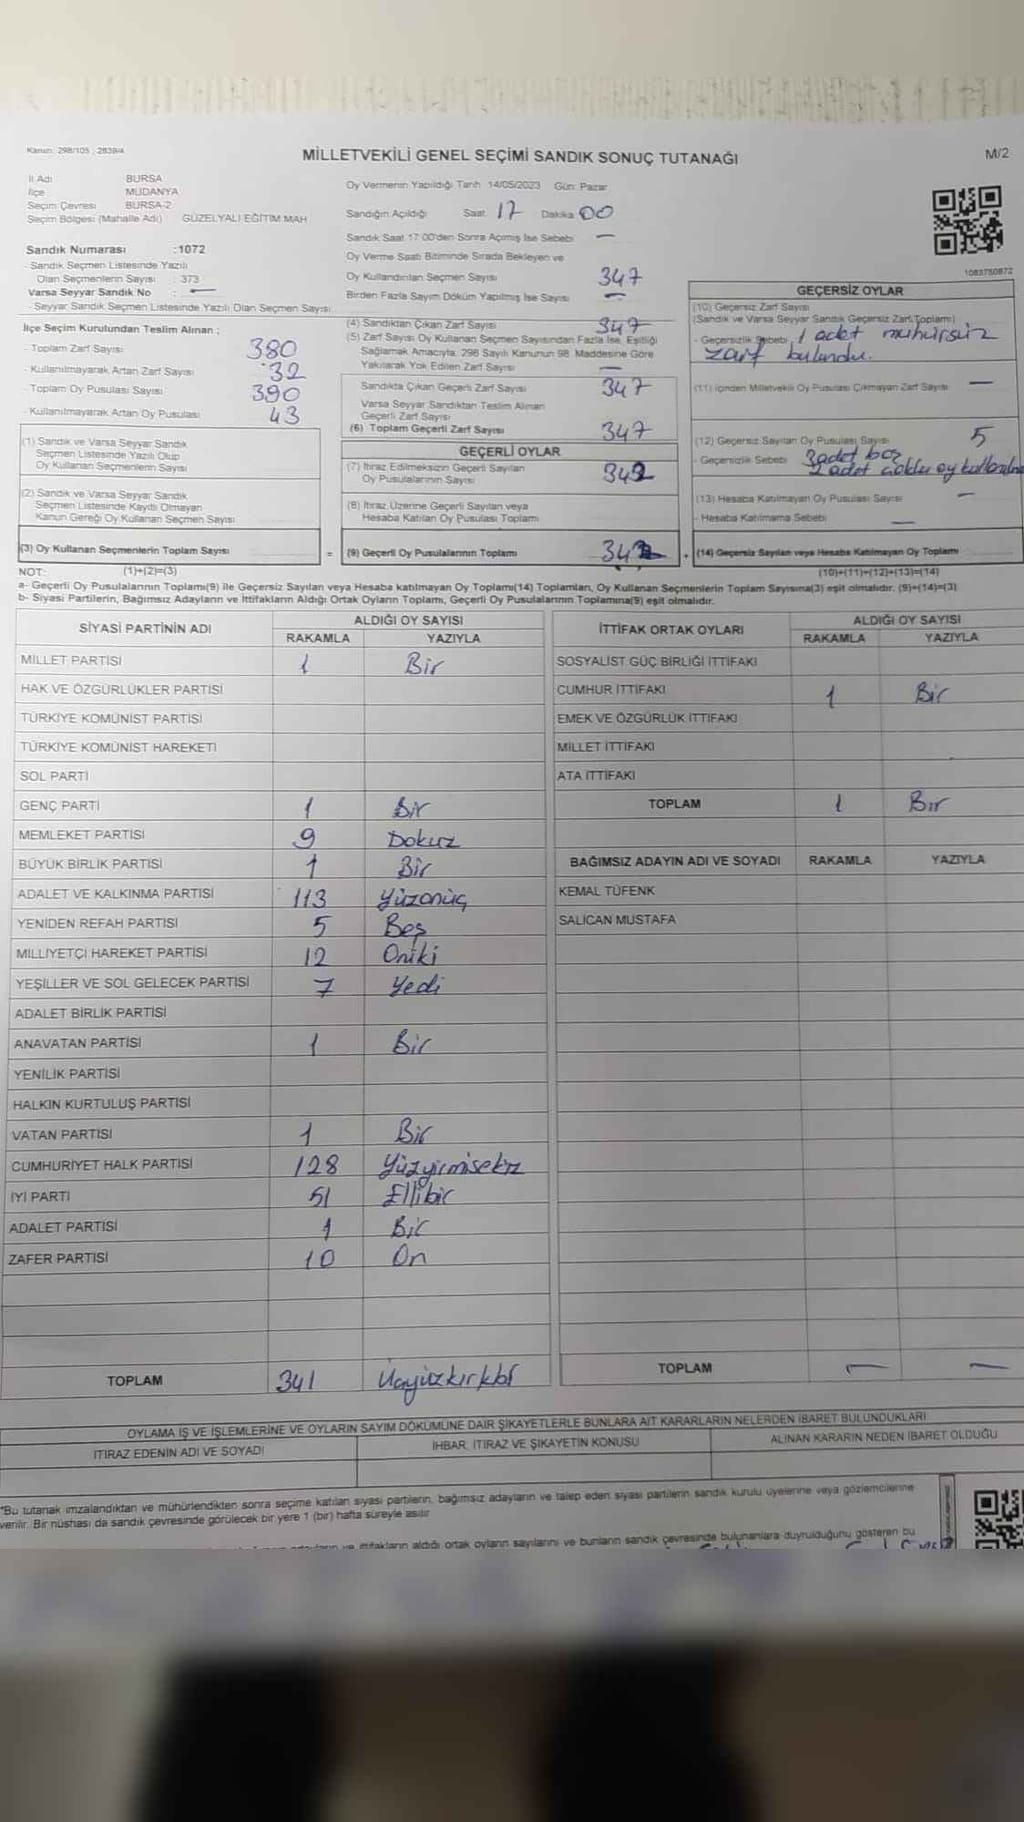 Kanun: 298/105 , 2839/4
MİLLETVEKİLİ GENEL SEÇİMİ SANDIK SONUÇ TUTANAĞI
M/2
İl Adı BURSA
İlçe MUDANYA
Seçim Çevresi BURSA-2
Seçim Bölgesi (Mahalle Adı) GÜZELYALI EĞİTİM MAH
Sandık Numarası :1072
- Sandık Seçmen Listesinde Yazılı
Olan Seçmenlerin Sayısı : 373
Varsa Seyyar Sandık No : —
- Seyyar Sandık Seçmen Listesinde Yazılı Olan Seçmen Sayısı
Oy Vermenin Yapıldığı Tarih 14/05/2023 Gün: Pazar
Sandığın Açıldığı Saat 17 Dakika 00
Sandık Saat 17:00'den Sonra Açılmış İse Sebebi —
Oy Verme Saati Bitiminde Sırada Bekleyen ve
Oy Kullandırılan Seçmen Sayısı 347
Birden Fazla Sayım Döküm Yapılmış İse Sayısı —
1083750872
İlçe Seçim Kurulundan Teslim Alınan ;
- Toplam Zarf Sayısı 380
- Kullanılmayarak Artan Zarf Sayısı 32
- Toplam Oy Pusulası Sayısı 390
- Kullanılmayarak Artan Oy Pusulası 43
(1) Sandık ve Varsa Seyyar Sandık
Seçmen Listesinde Yazılı Olup
Oy Kullanan Seçmenlerin Sayısı
(2) Sandık ve Varsa Seyyar Sandık
Seçmen Listesinde Kayıtlı Olmayan
Kanun Gereği Oy Kullanan Seçmen Sayısı
(3) Oy Kullanan Seçmenlerin Toplam Sayısı
(4) Sandıktan Çıkan Zarf Sayısı 347
(5) Zarf Sayısı Oy Kullanan Seçmen Sayısından Fazla İse, Eşitliği
Sağlamak Amacıyla, 298 Sayılı Kanunun 98. Maddesine Göre
Yakılarak Yok Edilen Zarf Sayısı —
Sandıkta Çıkan Geçerli Zarf Sayısı 347
Varsa Seyyar Sandıktan Teslim Alınan
Geçerli Zarf Sayısı
(6) Toplam Geçerli Zarf Sayısı 347
GEÇERLİ OYLAR
(7) İtiraz Edilmeksizin Geçerli Sayılan
Oy Pusulalarının Sayısı 342
(8) İtiraz Üzerine Geçerli Sayılan veya
Hesaba Katılan Oy Pusulası Toplamı
= (9) Geçerli Oy Pusulalarının Toplamı 342
GEÇERSİZ OYLAR
(10) Geçersiz Zarf Sayısı
(Sandık ve Varsa Seyyar Sandık Geçersiz Zarf Toplamı)
- Geçersizlik Sebebi 1 adet mühürsüz
zarf bulundu.
(11) İçinden Milletvekili Oy Pusulası Çıkmayan Zarf Sayısı —
(12) Geçersiz Sayılan Oy Pusulası Sayısı 5
- Geçersizlik Sebebi 3 adet boş
2 adet
(13) Hesaba Katılmayan Oy Pusulası Sayısı —
- Hesaba Katılmama Sebebi —
+ (14) Geçersiz Sayılan veya Hesaba Katılmayan Oy Toplamı
NOT: (1)+(2)=(3)
(10)+(11)+(12)+(13)=(14)
a- Geçerli Oy Pusulalarının Toplamı(9) ile Geçersiz Sayılan veya Hesaba katılmayan Oy Toplamı(14) Toplamları, Oy Kullanan Seçmenlerin Toplam Sayısına(3) eşit olmalıdır. (9)+(14)=(3)
b- Siyasi Partilerin, Bağımsız Adayların ve İttifakların Aldığı Ortak Oyların Toplamı, Geçerli Oy Pusulalarının Toplamına(9) eşit olmalıdır.
SİYASİ PARTİNİN ADI ALDIĞI OY SAYISI
RAKAMLA YAZIYLA
MİLLET PARTİSİ 1 Bir
HAK VE ÖZGÜRLÜKLER PARTİSİ
TÜRKİYE KOMÜNİST PARTİSİ
TÜRKİYE KOMÜNİST HAREKETİ
SOL PARTİ
GENÇ PARTİ 1 Bir
MEMLEKET PARTİSİ 9 Dokuz
BÜYÜK BİRLİK PARTİSİ 1 Bir
ADALET VE KALKINMA PARTİSİ 113 Yüzonüç
YENİDEN REFAH PARTİSİ 5 Beş
MİLLİYETÇİ HAREKET PARTİSİ 12 Oniki
YEŞİLLER VE SOL GELECEK PARTİSİ 7 Yedi
ADALET BİRLİK PARTİSİ
ANAVATAN PARTİSİ 1 Bir
YENİLİK PARTİSİ
HALKIN KURTULUŞ PARTİSİ
VATAN PARTİSİ 1 Bir
CUMHURİYET HALK PARTİSİ 128 Yüzyirmisekiz
İYİ PARTİ 51 Ellibir
ADALET PARTİSİ 1 Bir
ZAFER PARTİSİ 10 On
TOPLAM 341 Üçyüzkırkbir
İTTİFAK ORTAK OYLARI ALDIĞI OY SAYISI
RAKAMLA YAZIYLA
SOSYALİST GÜÇ BİRLİĞİ İTTİFAKI
CUMHUR İTTİFAKI 1 Bir
EMEK VE ÖZGÜRLÜK İTTİFAKI
MİLLET İTTİFAKI
ATA İTTİFAKI
TOPLAM 1 Bir
BAĞIMSIZ ADAYIN ADI VE SOYADI RAKAMLA YAZIYLA
KEMAL TÜFENK
SALİCAN MUSTAFA
TOPLAM — —
OYLAMA İŞ VE İŞLEMLERİNE VE OYLARIN SAYIM DÖKÜMÜNE DAİR ŞİKAYETLERLE BUNLARA AİT KARARLARIN NELERDEN İBARET BULUNDUKLARI
İTİRAZ EDENİN ADI VE SOYADI İHBAR, İTİRAZ VE ŞİKAYETİN KONUSU ALINAN KARARIN NEDEN İBARET OLDUĞU
*Bu tutanak imzalandıktan ve mühürlendikten sonra seçime katılan siyasi partilerin, bağımsız adayların ve talep eden siyasi partilerin sandık kurulu üyelerine veya gözlemcilerine
verilir. Bir nüshası da sandık çevresinde görülecek bir yere 1 (bir) hafta süreyle asılır
ve ittifakların aldığı ortak oyların sayılarını ve bunların sandık çevresinde bulunanlara duyrulduğunu gösteren bu